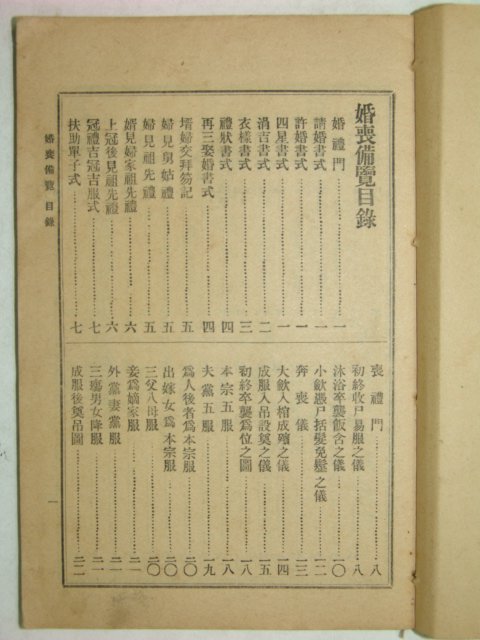 婚喪備覽目錄
婚禮門……一
請婚書式……一
許婚書式……一
四星書式……一
涓吉書式……二
衣樣書式……三
禮狀書式……四
再三娶婚書式……四
壻婦交拜笏記……五
婦見舅姑禮……五
婦見祖先禮……五
婿見婦家祖先禮……六
上冠後見祖先禮……六
冠禮吉冠吉服式……七
扶助單子式……七
喪禮門……八
初終收尸易服之儀……八
沐浴卒襲飯含之儀……一〇
小斂憑尸括髮免髽之儀……一二
奔喪儀……一三
大斂入棺成殯之儀……一四
成服入吊設奠之儀……一五
初終卒襲爲位之圖……一八
本宗五服……一八
夫黨五服……一九
爲人後者爲本宗服……二〇
出嫁女爲本宗服……二〇
三父八母服……二〇
妾爲嫡家服……二一
外黨妻黨服……二一
三殤男女降服……二一
成服後奠吊圖……二二
婚喪備覽 目錄
一